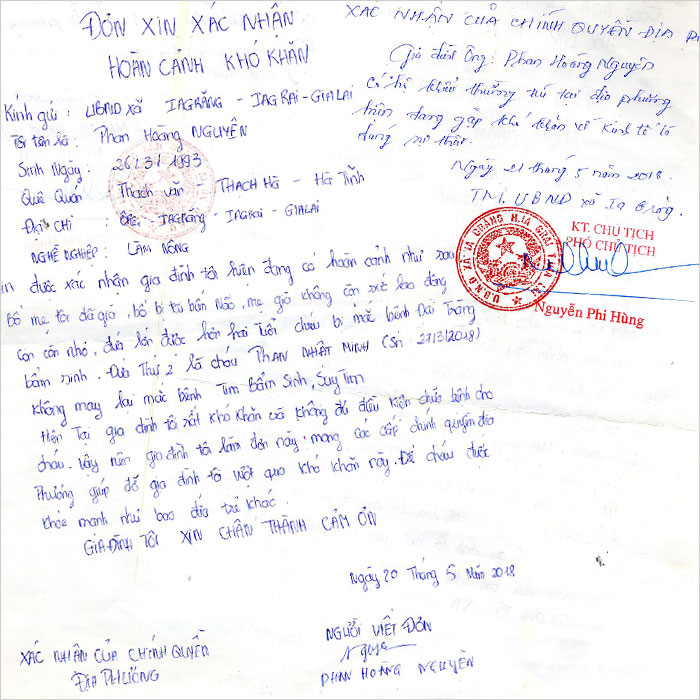 ĐƠN XIN XÁC NHẬN
HOÀN CẢNH KHÓ KHĂN
Kính gửi : UBND xã IAGRĂNG - IAGRAI - GIALAI
Tôi tên là : Phan Hoàng NGUYÊN
Sinh Ngày : 26/3/1993
Quê Quán : Thạch Văn - THẠCH HÀ - Hà Tĩnh
Địa chỉ : - IAGRĂNG - IAGRAI - GIALAI
NGHỀ NGHIỆP : LÀM NÔNG
in được xác nhận gia đình tôi hiện đang có hoàn cảnh như sau
Bố mẹ tôi đã già, bố bị tai bến Não, mẹ già không còn sức lao động
Con còn nhỏ, đứa lớn được hơn hai Tuổi cháu bị mắc bệnh Đại Tràng
bẩm sinh. Đứa Thứ 2 là cháu PHAN NHẬT MINH (Sn 27/3/2018)
không may lại mắc bệnh Tim Bẩm Sinh, Suy Tim
Hiện Tại gia đình tôi rất khó khăn và không đủ điều kiện chữa bệnh cho
cháu. Vậy nên gia đình tôi làm đơn này, mong các cấp chính quyền địa
Phương giúp đỡ gia đình tôi vượt qua khó khăn này. Để cháu được
khỏe mạnh như bao đứa trẻ khác.
GIA ĐÌNH TÔI XIN CHÂN THÀNH CẢM ƠN
Ngày 20 Tháng 5 Năm 2018
XÁC NHẬN CỦA CHÍNH QUYỀN
ĐỊA PHƯƠNG
NGƯỜI VIẾT ĐƠN
Nguyên
PHAN HOÀNG NGUYÊN
XÁC NHẬN CỦA CHÍNH QUYỀN ĐỊA P
Gia đình Ông : Phan Hoàng Nguyên
có hộ khẩu thường trú tại địa phương
hiện đang gặp khó khăn về kinh tế là
đúng sự thật.
Ngày 21 tháng 5 năm 2018.
TM. UBND xã Ia Grăng.
KT. CHỦ TỊCH
PHÓ CHỦ TỊCH
U.B.N.D XÃ IA GRĂNG H.IA GRAI
Nguyễn Phi Hùng